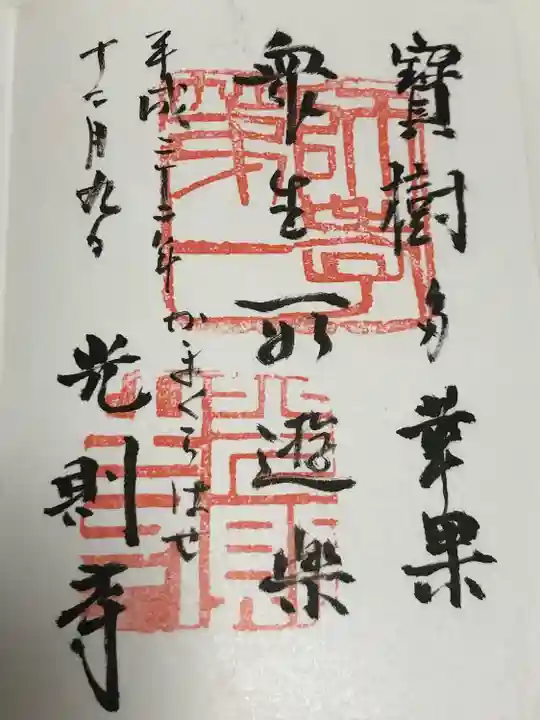 寶樹多華果
衆生所遊樂
かまくらはせ
平成二十二年
十二月九日
光則寺